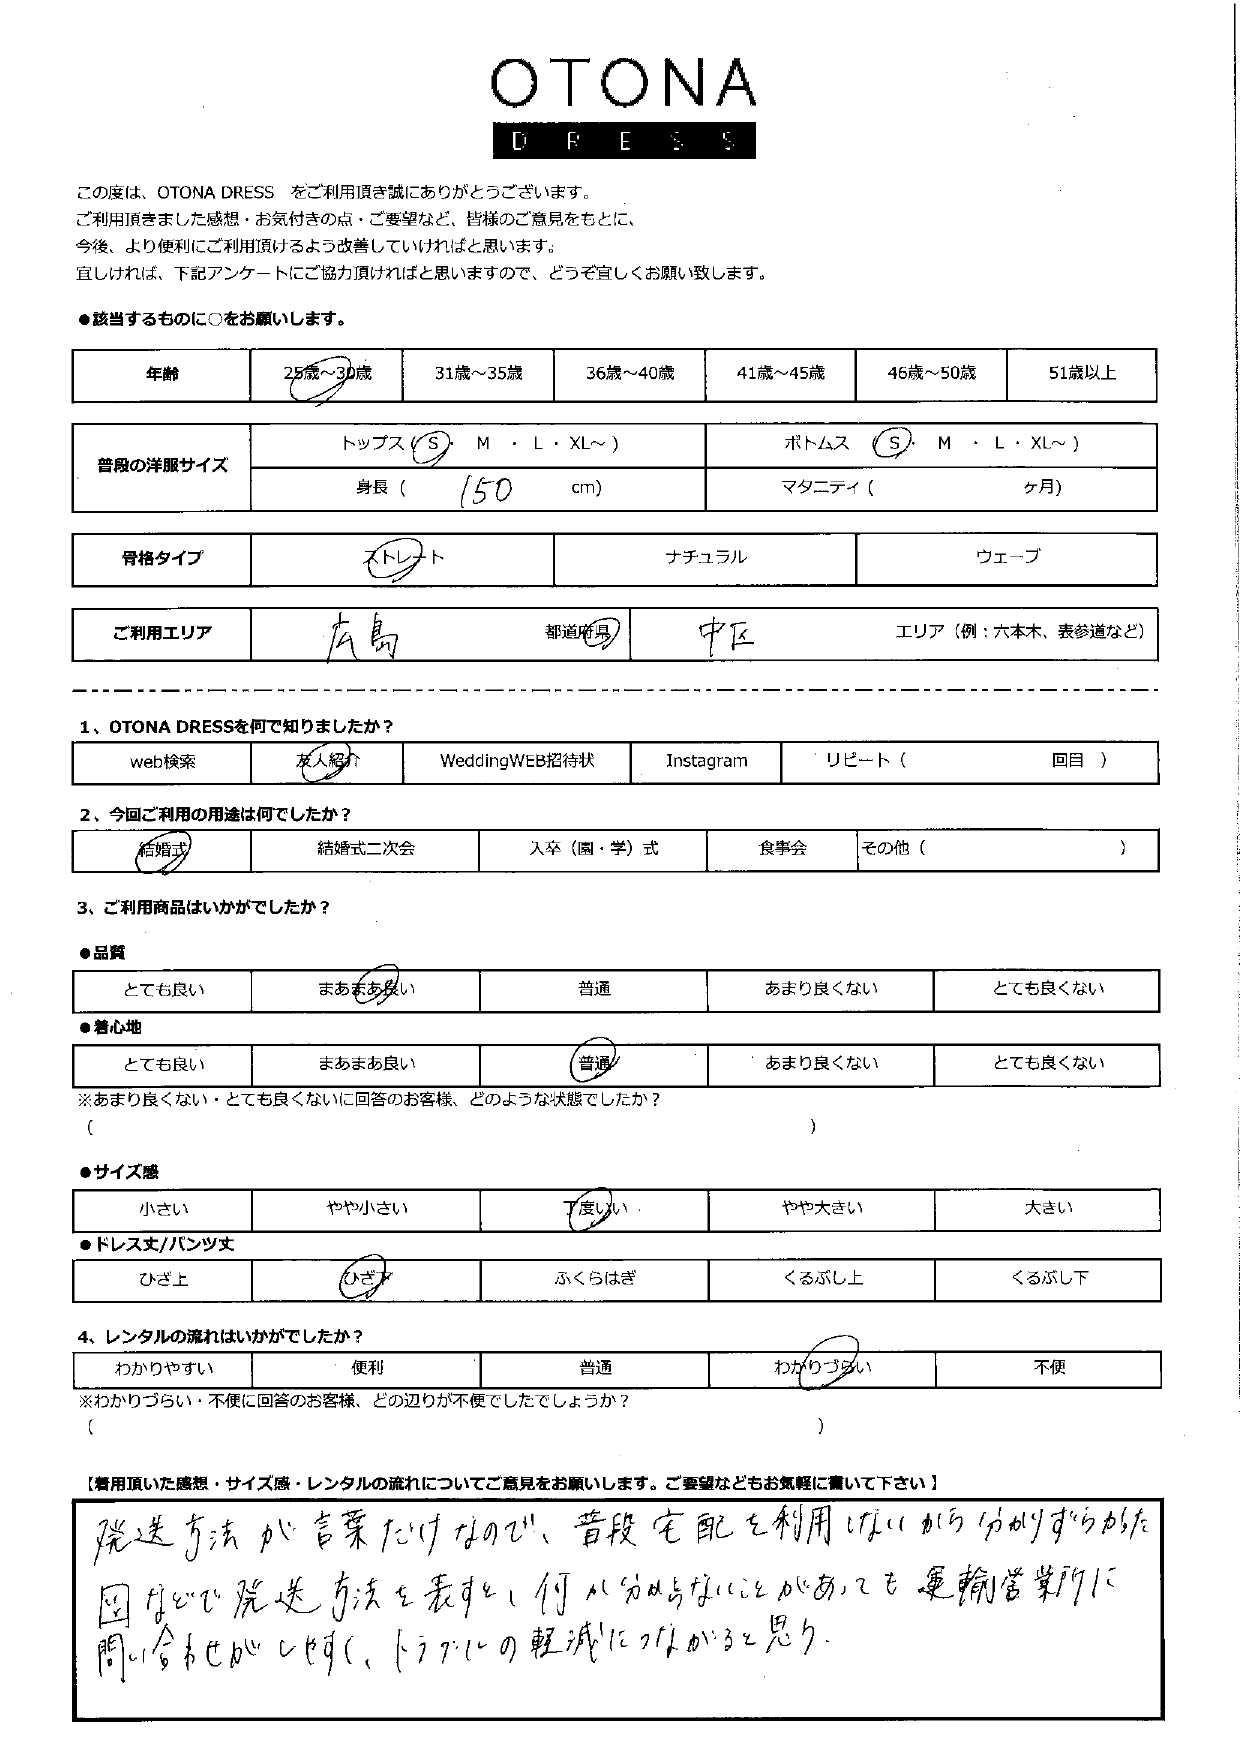 OTONA
DRESS
この度は、OTONA DRESS をご利用頂き誠にありがとうございます。
ご利用頂きました感想・お気付きの点・ご要望など、皆様のご意見をもとに、
今後、より便利にご利用頂けるよう改善していければと思います。
宜しければ、下記アンケートにご協力頂ければと思いますので、どうぞ宜しくお願い致します。
●該当するものに○をお願いします。
年齢 25歳～30歳 31歳～35歳 36歳～40歳 41歳～45歳 46歳～50歳 51歳以上
普段の洋服サイズ トップス ( S ・ M ・ L ・ XL～ ) ボトムス ( S ・ M ・ L ・ XL～ )
身長 ( 150 cm) マタニティ ( ヶ月)
骨格タイプ ストレート ナチュラル ウェーブ
ご利用エリア 広島 都道府県 中区 エリア（例：六本木、表参道など）
1、OTONA DRESSを何で知りましたか？
web検索 友人紹介 WeddingWEB招待状 Instagram リピート（ 回目 ）
2、今回ご利用の用途は何でしたか？
結婚式 結婚式二次会 入卒（園・学）式 食事会 その他（ ）
3、ご利用商品はいかがでしたか？
●品質
とても良い まあまあ良い 普通 あまり良くない とても良くない
●着心地
とても良い まあまあ良い 普通 あまり良くない とても良くない
※あまり良くない・とても良くないに回答のお客様、どのような状態でしたか？
（ ）
●サイズ感
小さい やや小さい 丁度いい やや大きい 大きい
●ドレス丈/パンツ丈
ひざ上 ひざ下 ふくらはぎ くるぶし上 くるぶし下
4、レンタルの流れはいかがでしたか？
わかりやすい 便利 普通 わかりづらい 不便
※わかりづらい・不便に回答のお客様、どの辺りが不便でしたでしょうか？
（ ）
【着用頂いた感想・サイズ感・レンタルの流れについてご意見をお願いします。ご要望などもお気軽に書いて下さい】
発送方法が言葉だけなので、普段宅配を利用しないから分かりずらかった
図などで発送方法を表すと、何か分からないことがあっても運輸営業所に
問い合わせがしやすく、トラブルの軽減につながると思う.